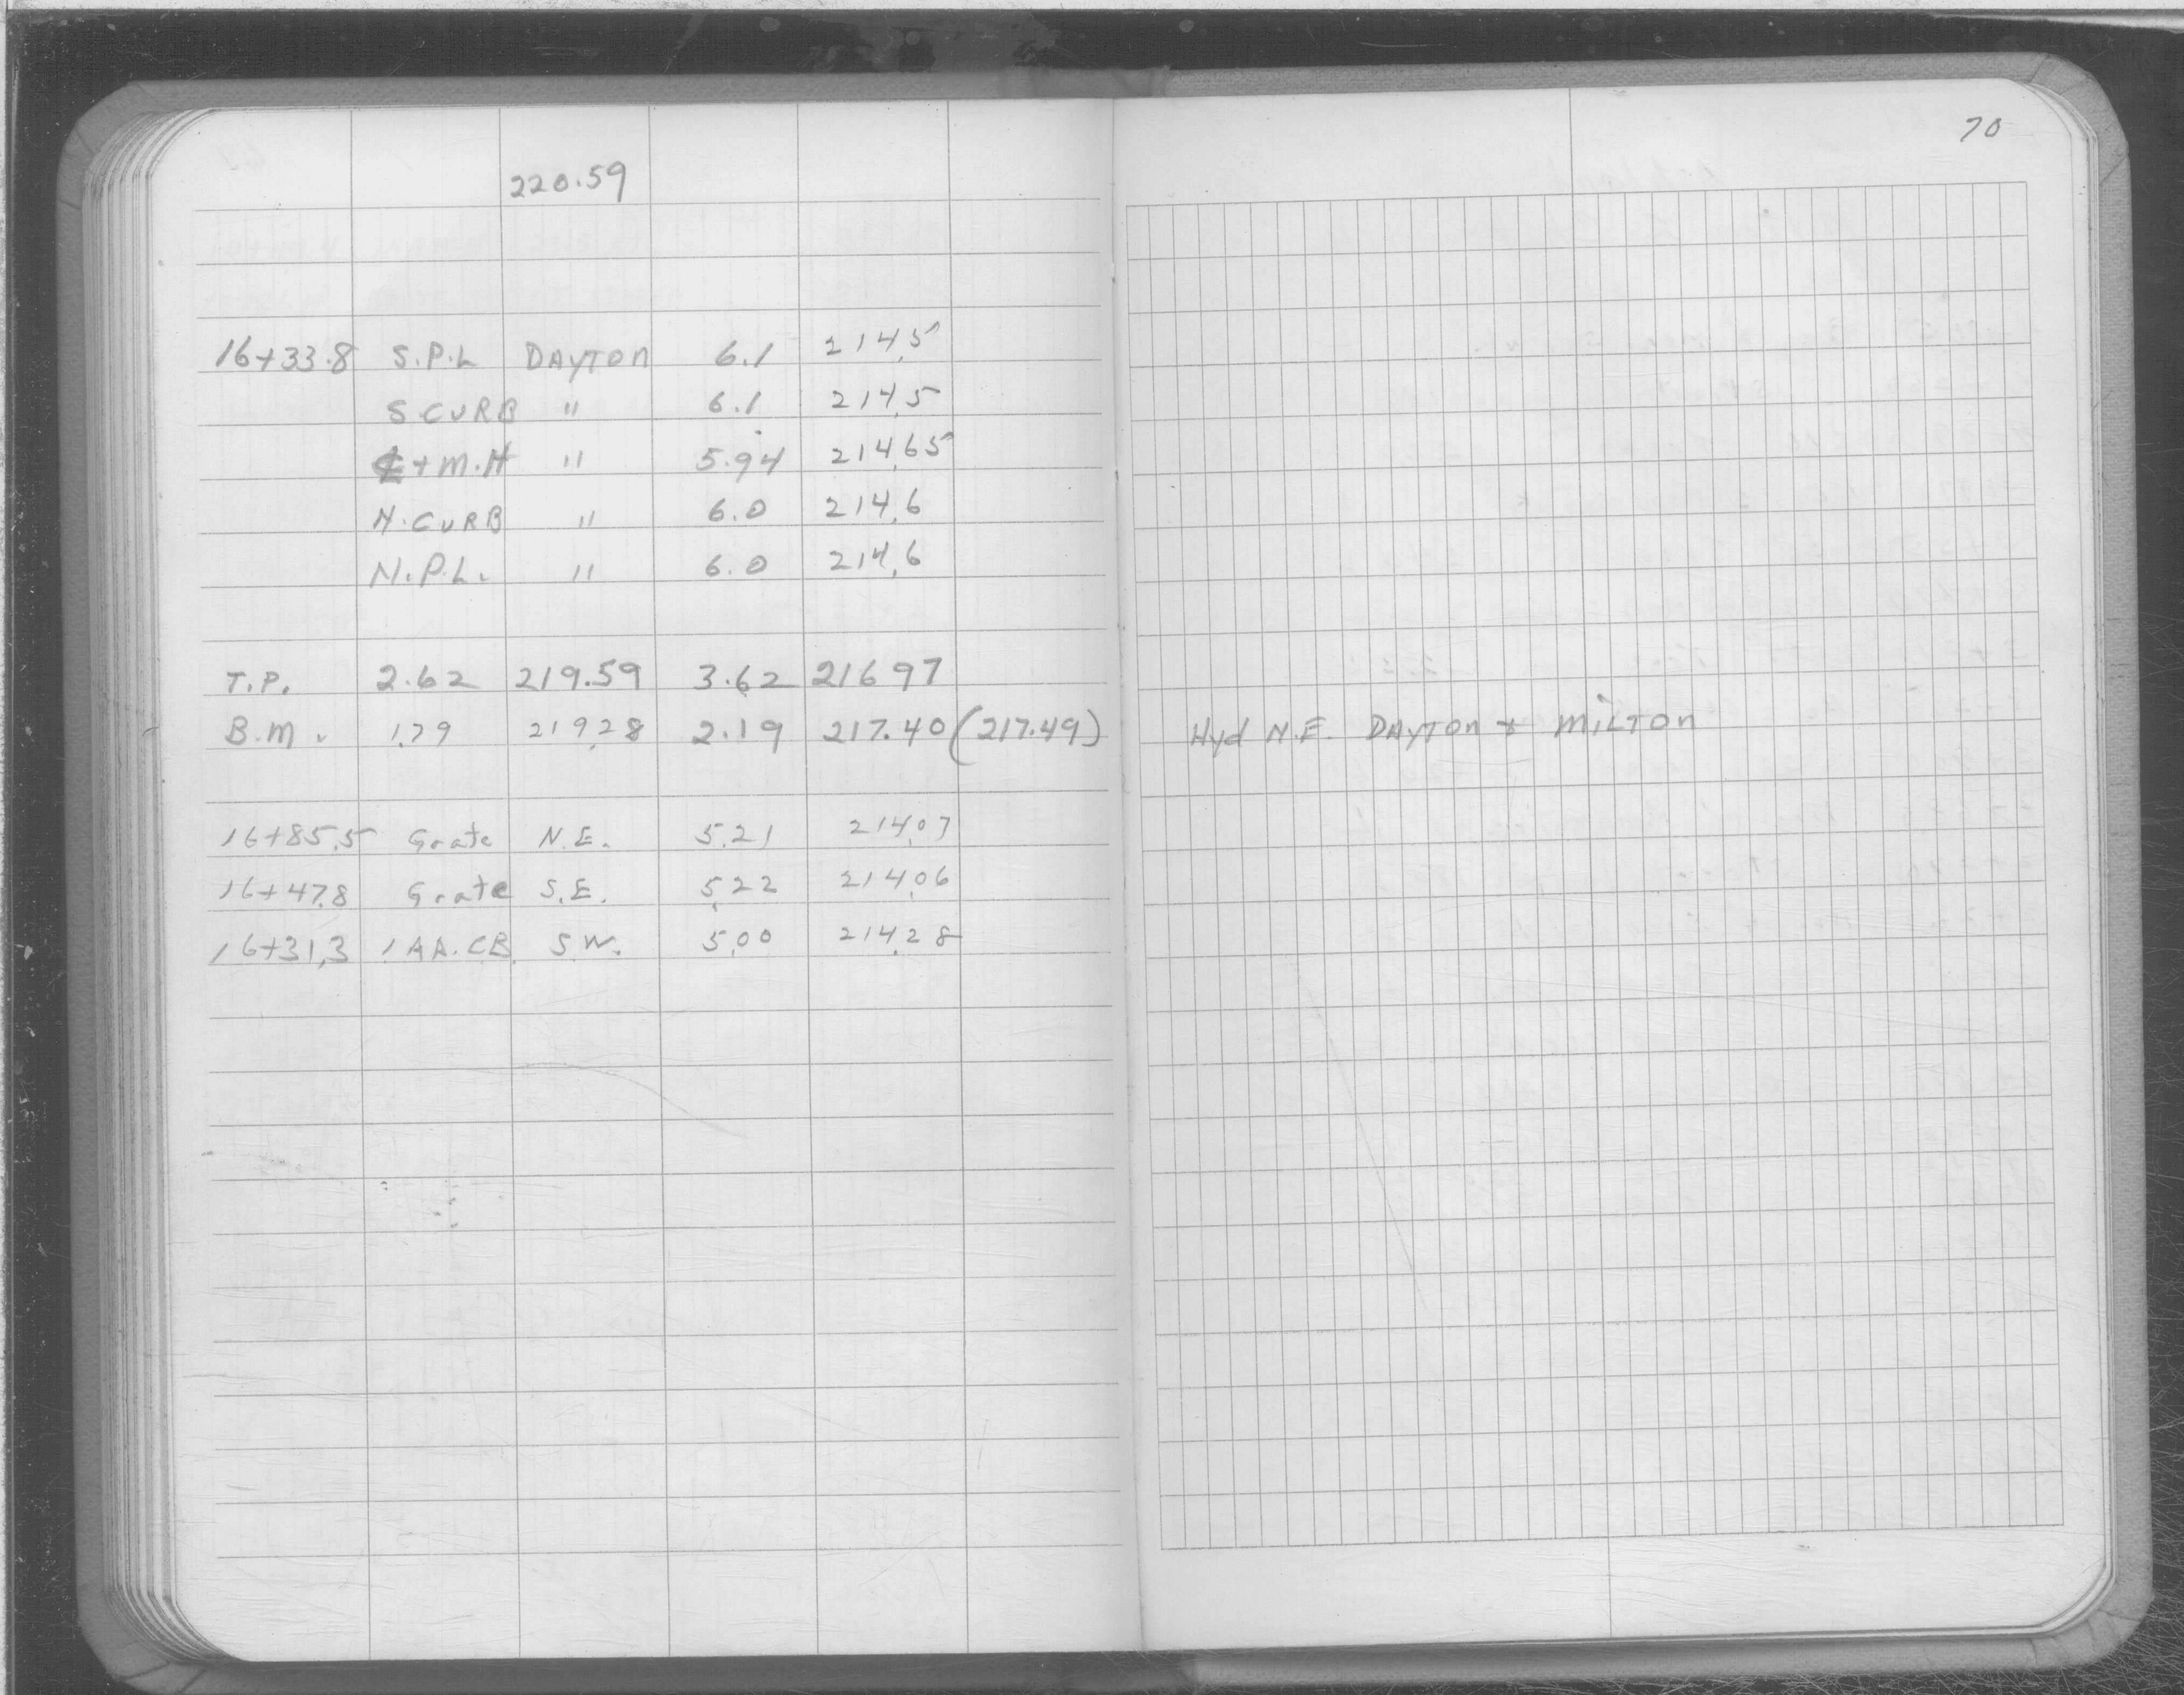 70
220.59
16+33.8 S.P.L DAYTON 6.1 214.5
S CURB " 6.1 214.5
℄ + M.H " 5.94 214.65
N. CURB " 6.0 214.6
N.P.L. " 6.0 214.6
T.P. 2.62 219.59 3.62 216 97
B.M. 1.79 219.28 2.19 217.40 (217.49) Hyd N.E. DAYTON & MILTON
16+85.5 Grate N.E. 5.21 214.07
16+47.8 Grate S.E. 5.22 214.06
16+31.3 1 AA.CB. S.W. 5.00 214.28